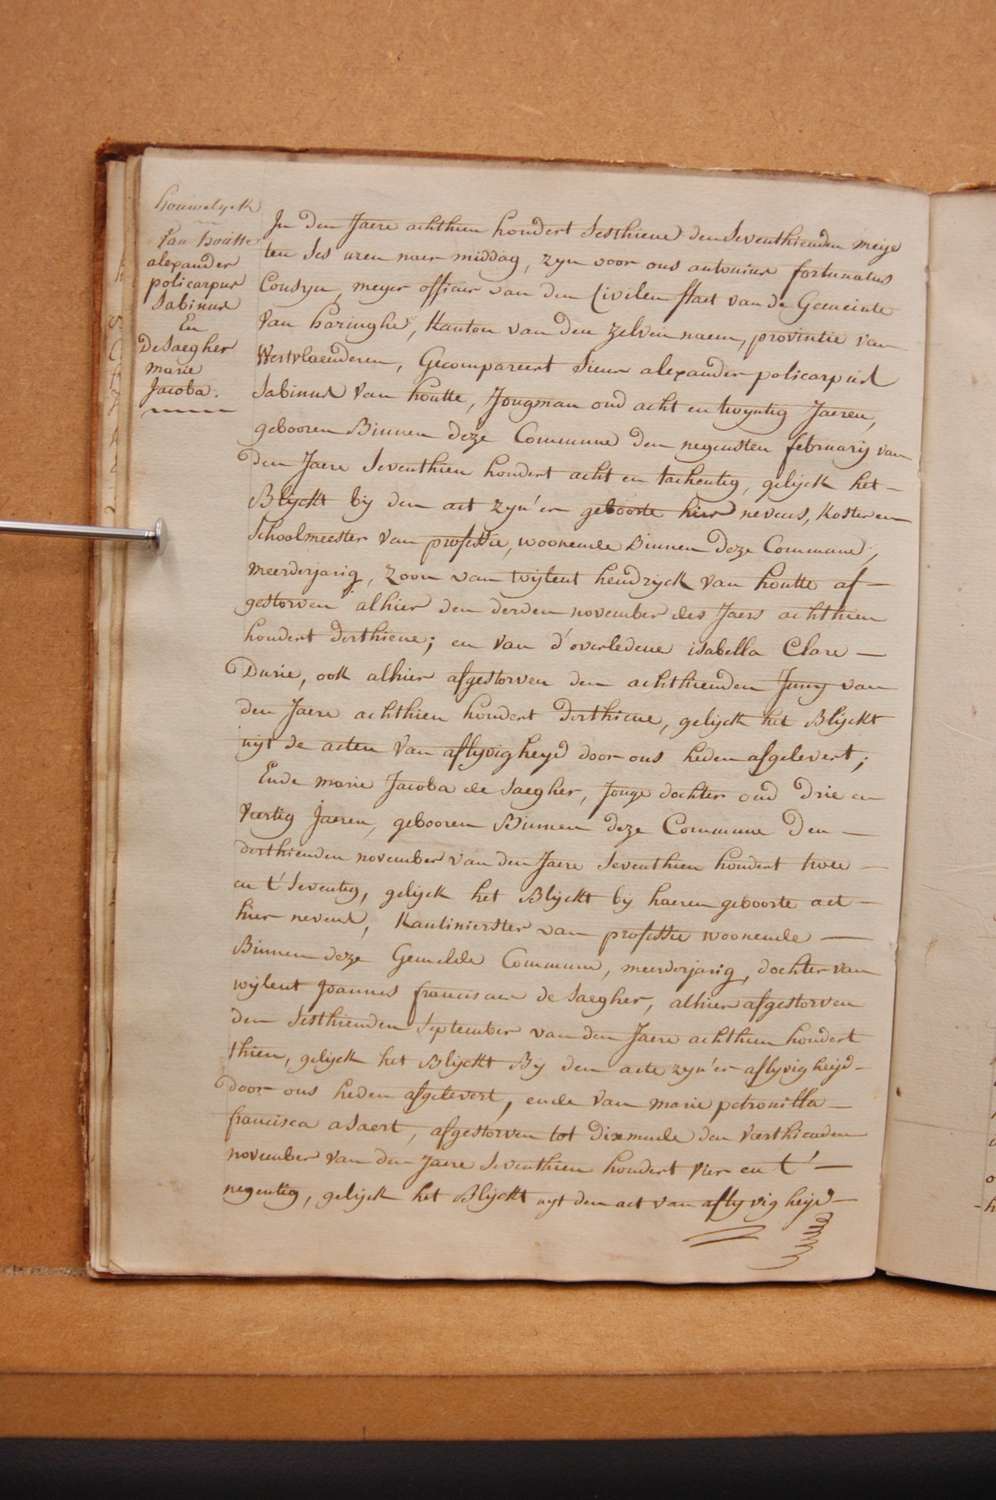 houwelyck
Van houtte
alexander
policarpus
Sabinus
En
DeSaegher
marie
Jacoba.
In den Jaere achthien hondert Sesthiene den Seventhienden meije
ten Ses uren naer middag, zyn voor ons antonius fortunatus
Cousyn, meyer officier van den Civilen staet van de Gemeinte
Van haringhe, Kanton van den zelven naem, provintie van
Westvlaenderen, Gecompareert Sieur alexander policarpus
Sabinus Van houtte, Jongman oud acht en twyntig Jaeren,
gebooren Binnen deze Commune den negensten february van
den Jaere Seventhien hondert acht en tachentig, gelyck het
Blyckt by den act zyn'er geboorte hier nevens, Koster en
Schoolmeester van professie, woonende Binnen deze Commune,
meerderjarig, Zoon van wylent hendryck Van houtte af-
gestorven alhier den derden november des Jaers achthien
hondert derthiene; en van d'overledene isabella Clare
Durie, ook alhier afgestorven den achthienden Juny van
den Jaere achthien hondert derthiene, gelyck het Blyckt
uyt de acten van aflyvigheyd door ons heden afgelevert;
Ende marie Jacoba de Saegher, Jonge dochter oud drie en
Veertig Jaeren, gebooren Binnen deze Commune Den
derthienden november van den Jaere Seventhien hondert twee
en t'Seventig, gelyck het Blyckt by haeren geboorte act
hier nevens, Kantinierster van professie woonende
Binnen deze Gemelde Commune, meerderjarig, dochter van
wylent Joannes franciscus de Saegher, alhier afgestorven
den Sesthienden September van den Jaere achthien hondert
thien, gelyck het Blyckt By den acte zyn'er aflyvigheyd
door ons heden afgelevert, ende van marie petronilla
francisca asaert, afgestorven tot dixmude den veerthienden
november van den Jaere Seventhien hondert vier en t'
negentig, gelyck het Blyckt uyt den act van aflyvigheyd